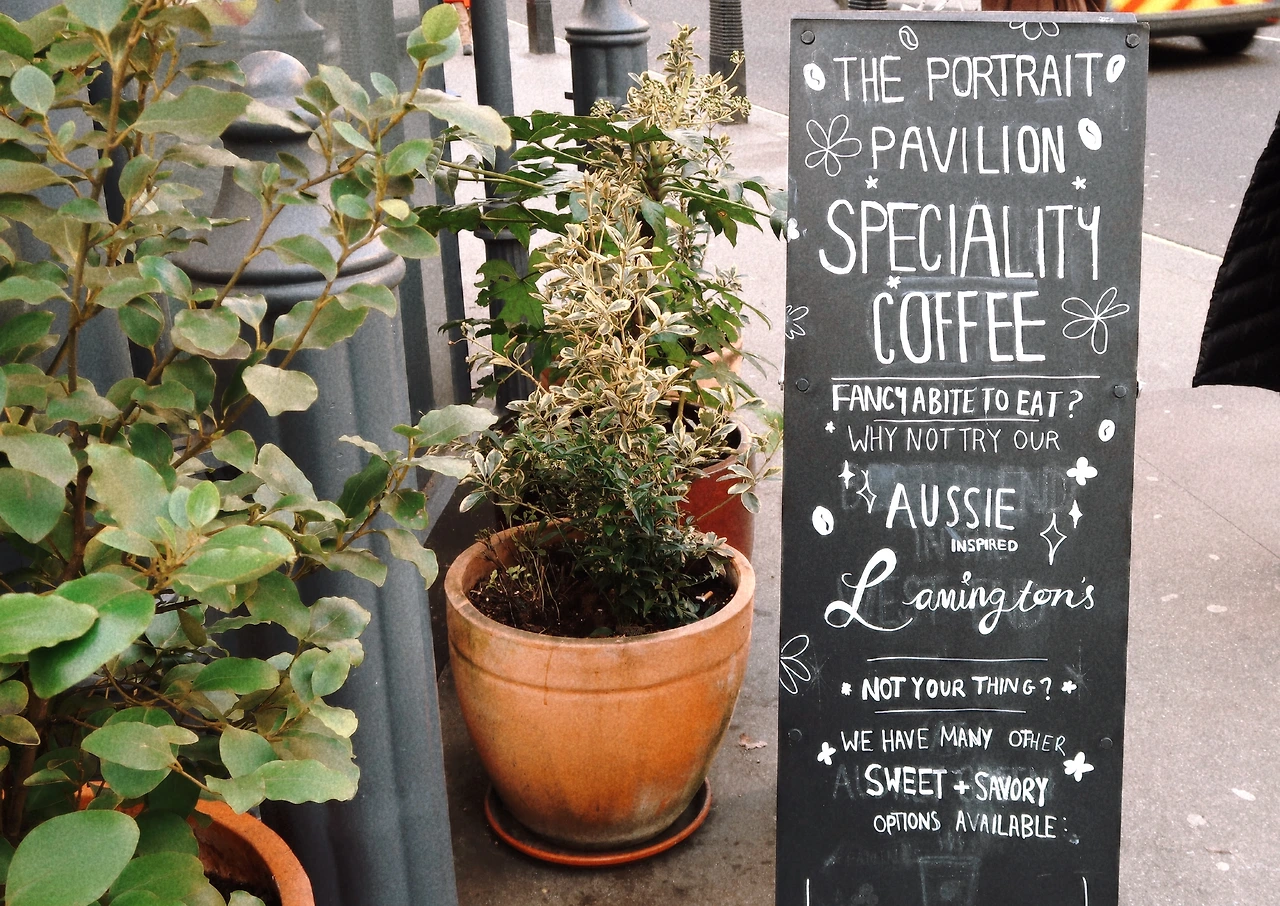 THE PORTRAIT
PAVILION
SPECIALITY
COFFEE
FANCY A BITE TO EAT?
WHY NOT TRY OUR
AUSSIE
INSPIRED
Lamington's
NOT YOUR THING?
WE HAVE MANY OTHER
SWEET + SAVORY
OPTIONS AVAILABLE: